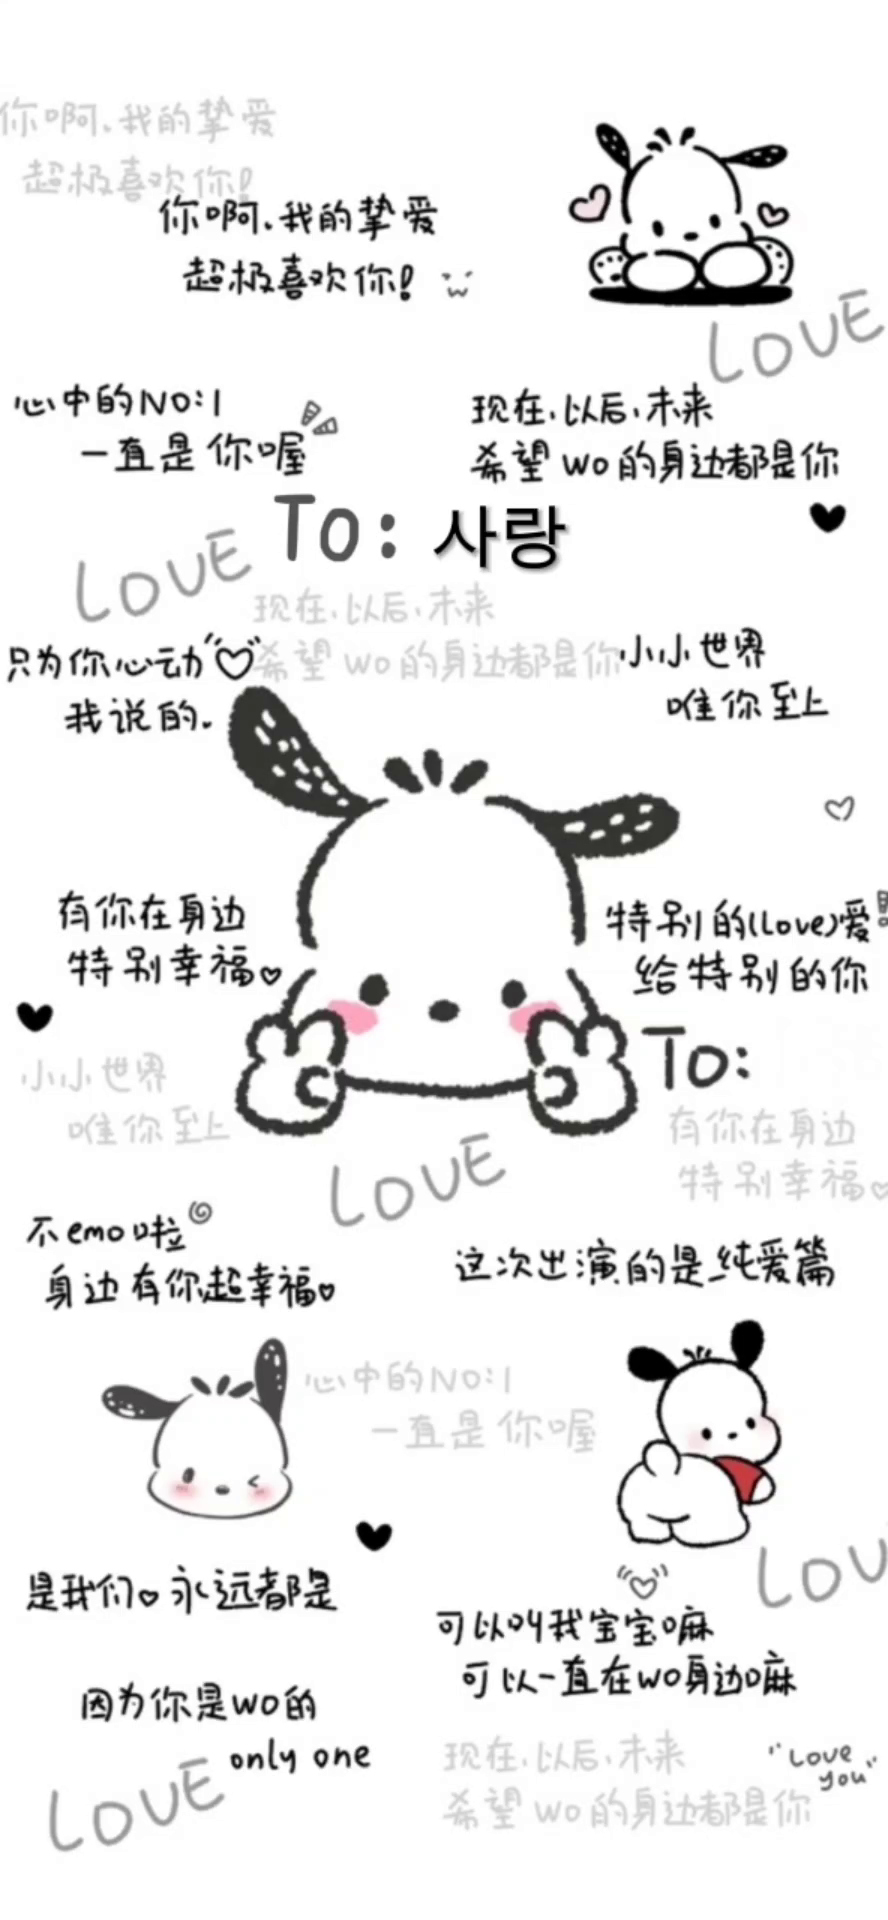 你啊,我的挚爱
超极喜欢你!
你啊,我的挚爱
超极喜欢你!
LOVE
心中的NO:1
一直是你喔
现在,以后,未来
希望wo的身边都是你
To: 사랑
LOVE
现在,以后,未来
希望wo的身边都是你
只为你心动
我说的.
小小世界
唯你至上
有你在身边
特别幸福
特别的(Love)爱
给特别的你
To:
小小世界
唯你至上
有你在身边
特别幸福
LOVE
不emo啦
身边有你超幸福
这次出演的是纯爱篇
心中的NO:1
一直是你喔
LOV
是我们 永远都是
可以叫我宝宝嘛
可以一直在wo身边嘛
因为你是wo的
only one
现在,以后,未来
希望wo的身边都是你
"Love
you"
LOVE